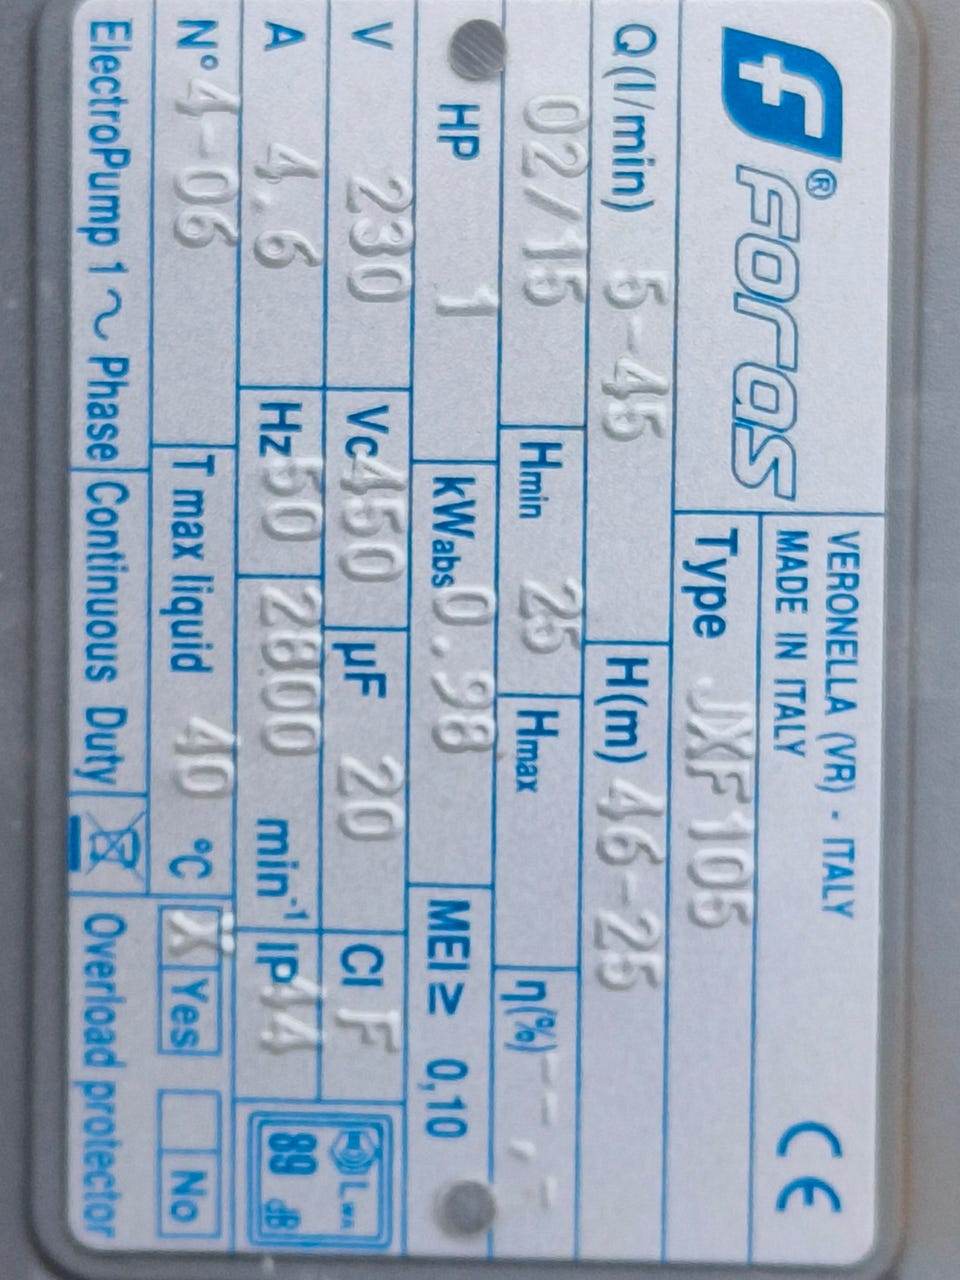 f® Foras
VERONELLA (VR) - ITALY
MADE IN ITALY
CE
Type JXF106
Q (l/min) 5-45 H(m) 46-25
02/15 Hmin 25 Hmax η(%) --,-
HP 1 kWabs 0.98 MEI ≥ 0,10
V 230 Vc 450 µF 20 Cl F
A 4.6 Hz 50 2800 min⁻¹ IP 44
LWA 89 dB
N° 4-06 T max liquid 40 °C X Yes No
ElectroPump 1 ~ Phase Continuous Duty Overload protector